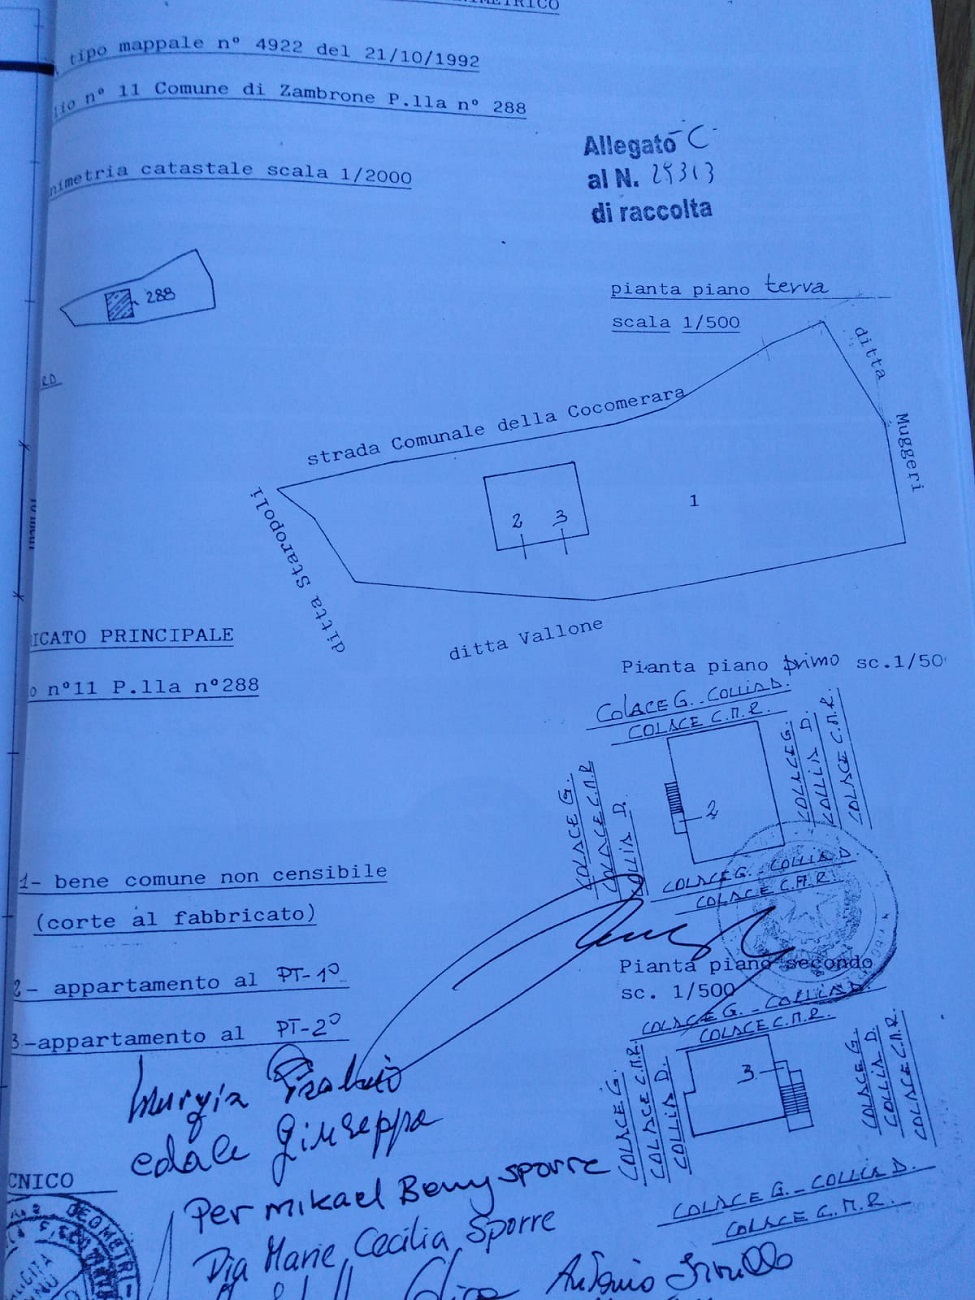 tipo mappale n° 4922 del 21/10/1992
n° 11 Comune di Zambrone P.lla n° 288
nimetria catastale scala 1/2000
Allegato C
al N. 25313
di raccolta
288
pianta piano terra
scala 1/500
strada Comunale della Cocomerara
ditta Muggeri
ditta Staropoli
2 3
1
ditta Vallone
ICATO PRINCIPALE
o n°11 P.lla n°288
Pianta piano primo sc.1/50
COLACE G. - COLLIA D.
COLACE C.M.R.
COLACE G.
COLACE C.M.R
COLLIA D.
2
COLACE G.
COLLIA D.
COLACE C.M.R.
COLACE G. - COLLIA D.
COLACE C.M.R.
1- bene comune non censibile
(corte al fabbricato)
2- appartamento al PT-1°
3-appartamento al PT-2°
Pianta piano secondo
sc. 1/500
COLACE G. - COLLIA D.
COLACE C.M.R.
COLACE G.
COLACE C.M.R.
COLLIA D.
3
COLACE G.
COLLIA D.
COLACE C.M.R.
COLACE G. - COLLIA D.
COLACE C.M.R.
Giuseppa
CNICO
Per Mikael Benny Sporre
Pia Marie Cecilia Sporre
Antonio
GEOMETRI